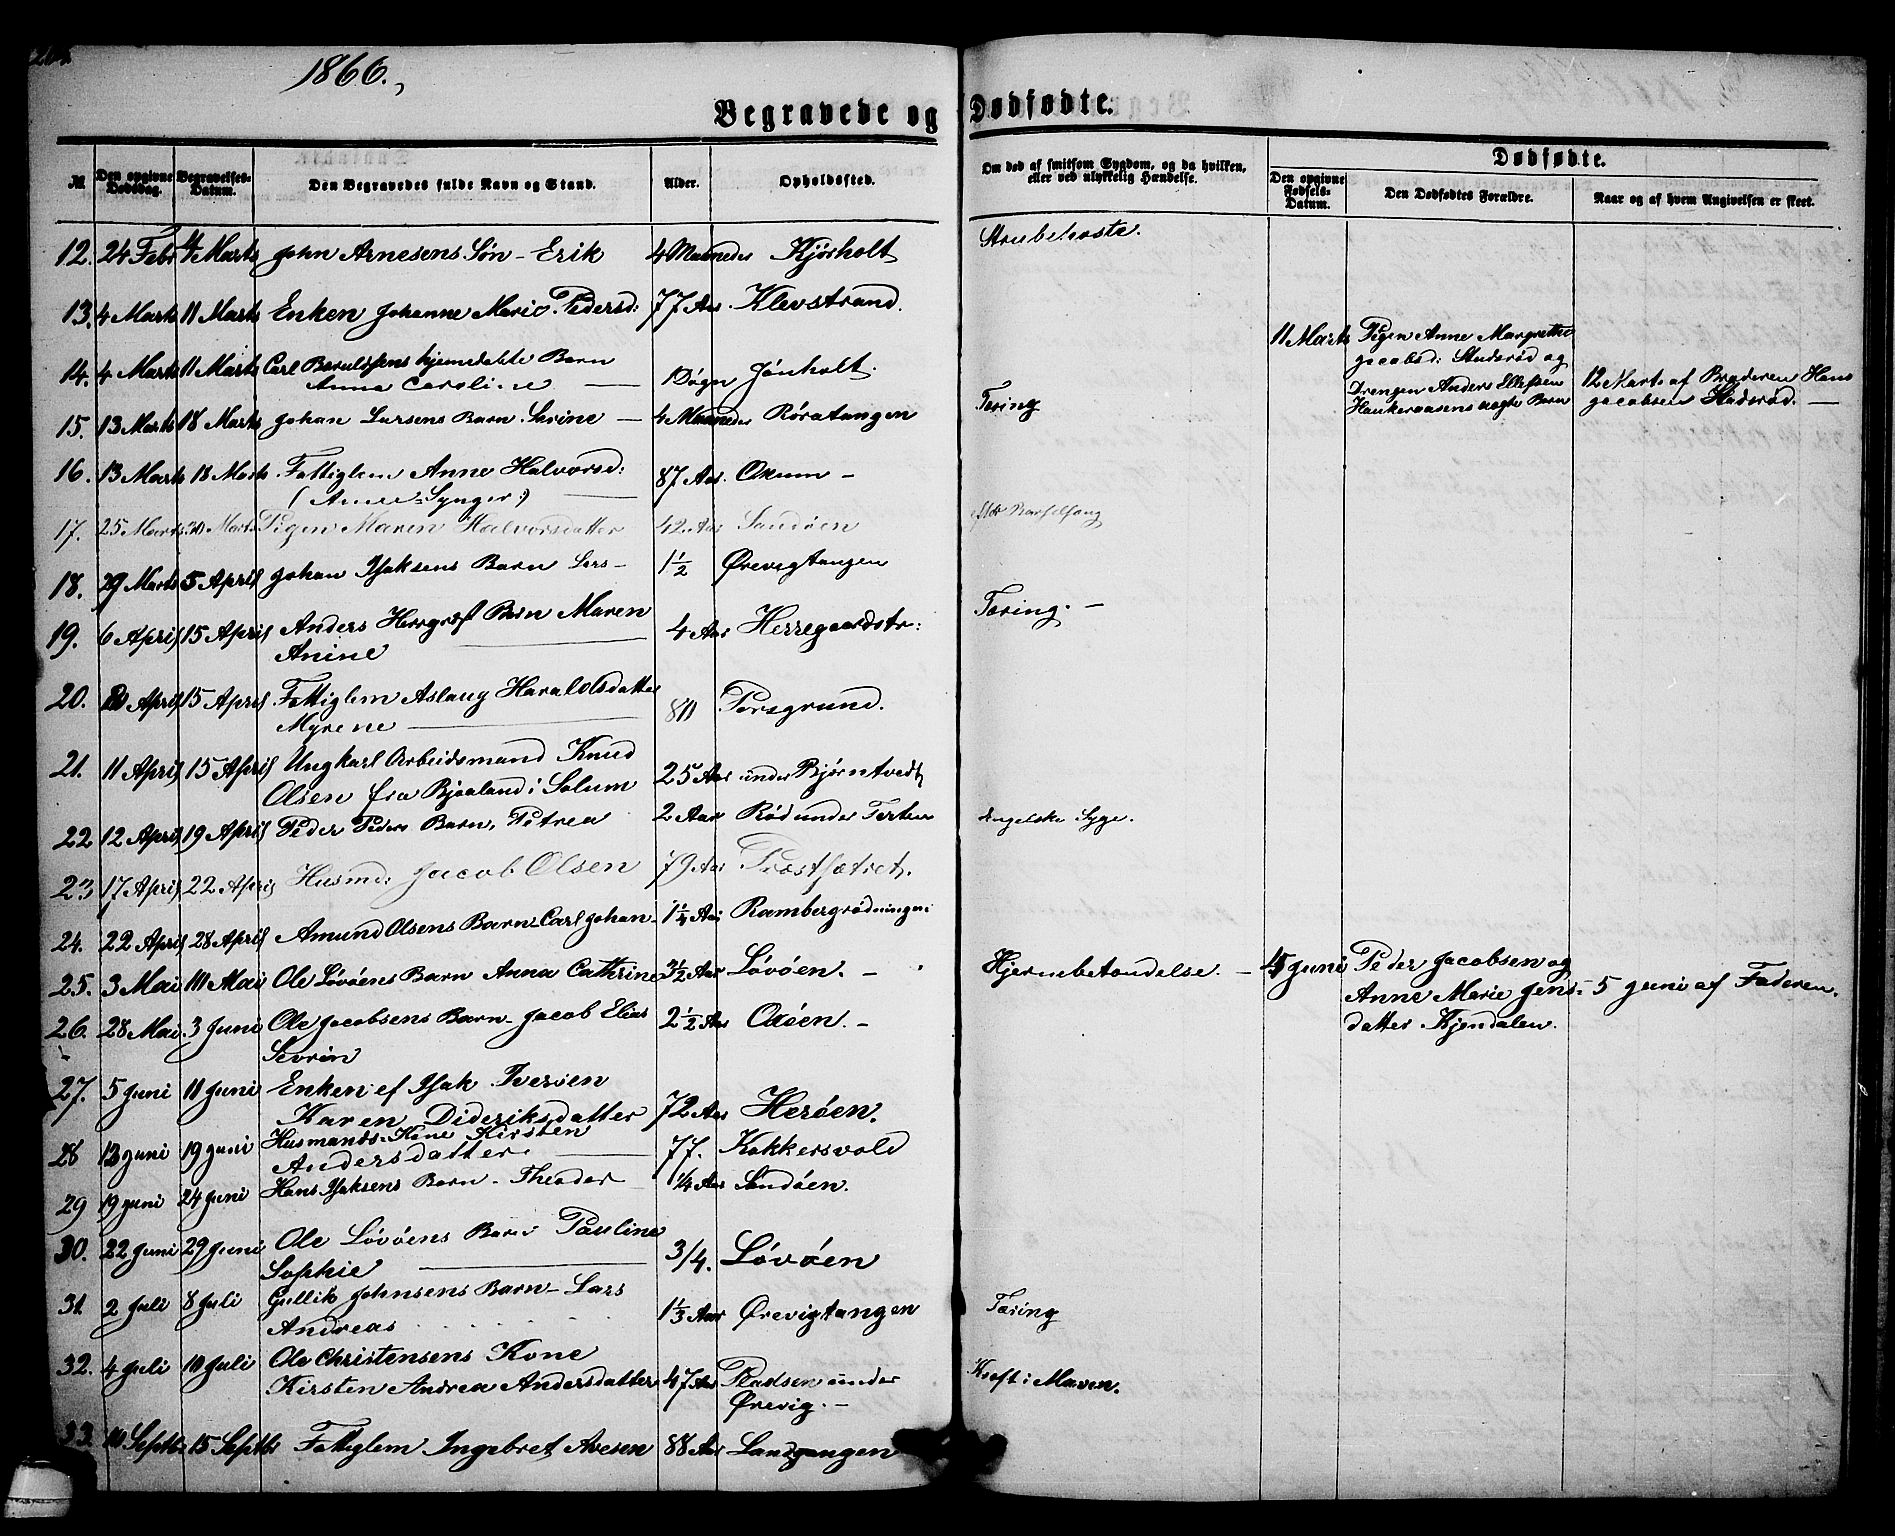 1866.
Begravede og Dødfødte.
№
Den opgivne Dødsdag.
Begravelses-Datum.
Den Begravedes fulde Navn og Stand.
Alder.
Opholdssted.
Om død af smitsom Sygdom, og da hvilken, eller ved ulykkelig Hændelse.
Dødfødte.
Den opgivne Fødsels-Datum.
Den Dødfødtes Forældre.
Naar og af hvem Angivelsen er skeet.
12. 24 Febr 4 Marts John Arnesens Søn - Erik 4 Maaneder Kjørholt Strubehoste.
13. 4 Marts 11 Marts Enken Johanne Marie Pedersd: 77 Aar. Klevstrand.
14. 4 Marts 11 Marts Carl hjemdøbte Barn
Anna Caroline — 1 Døgn Jønholt.
11 Marts Pigen Anne Margrethe
Jacobsd: Studsrød og
Drengen Anders Ellefsen
uægte Barn
12 Marts af Broderen Hans
Jacobsen Studsrød. —
15. 13 Marts 18 Marts Johan Larsens Barn Serine — 4 Maaneder Røratangen Tæring
16. 13 Marts 18 Marts Fattiglem Anne Halvorsd:
(Anne Synger:) — 87 Aar. Okum -
17. 25 Marts 30 Marts Pigen Maren Halvorsdatter 42 Aar Sandøen efter Barselseng
18. 29 Marts 5 April Johan Isaksens Barn Lars - 1½ Ørevigtangen
19. 6 April 15 April Anders Barn Maren
Anine — 4 Aar Herregaardstr: Tæring. -
20. 10 April 15 April Fattiglem Aslaug Haraldsdatter
Myrene — 80 Porsgrund.
21. 11 April 15 April Ungkarl Arbeidsmand Knud
Olsen fra Bjaaland i Solum 25 Aar under Bjørntvedt
22 12 April 19 April Peder Peders Barn, Petrea 2 Aar Rød under Tveten Engelske Syge.
23 17 April 22 April Husmd: Jacob Olsen 79 Aar Præstsætret.
24. 22 April 28 April Amund Olsens Barn Carl Johan 1¼ Aar Rambergrødningen
25. 3 Mai 10 Mai Ole Løvøens Barn Anna Cathrine 3½ Aar Løvøen. - Hjernebetændelse. -
4 Juni Peder Jacobsen og
Anne Marie Jens-
datter Kjendalen.
5 Juni af Faderen.
26. 28 Mai 3 Juni Ole Jacobsens Barn Jacob Elias
Sevrin 2½ Aar Odøen. -
27. 5 Juni 10 Juni Enken ef Isak Iversen
Karen Dideriksdatter 72 Aar Herøen.
28 12 Juni 19 Juni Husmands-Kone Kirsten
Andersdatter. — 77. Kokkersvold
29 19 Juni 24 Juni Hans Isaksens Barn - Theodor 1¼ Aar Sandøen.
30. 22 Juni 29 Juni Ole Løvøens Barn Pauline
Sophie — 3/4. Løvøen
31. 2 Juli 8 Juli Gullik Johnsens Barn - Lars
Andreas 1⅓ Aar Ørevigtangen Tæring
32. 4 Juli 10 Juli Ole Christensens Kone
Kirsten Andrea Andersdatter 47 Aar Pladsen under
Ørevig. - Kræft i Maven.
33. 10 Septb. 15 Septbr Fattiglem Ingebret Avesen 88 Aar Landgangen